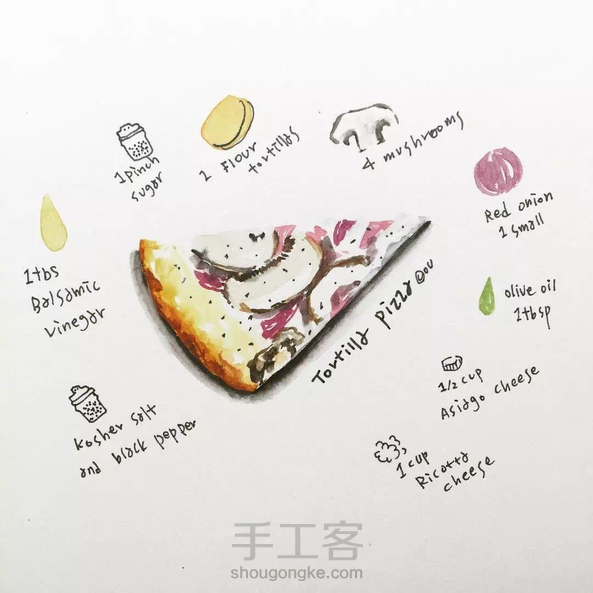 1 pinch
sugar
2 Flour
tortillas
4 mushrooms
Red onion
1 small
1tbs
Balsamic
vinegar
olive oil
1tbsp
Tortilla pizza ©OU
1/2 cup
Asiago cheese
Kosher salt
and black pepper
1 cup
Ricotta
cheese
手工客
shougongke.com